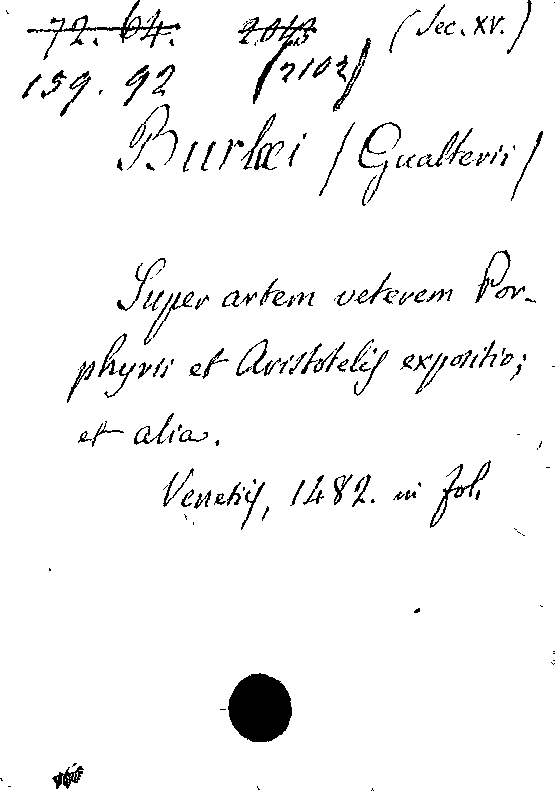 72. 64. 2043 (Sec. XV.)
159. 92 (2102)
Burlæi (Gualterii)
Super artem veterem Por-
phyrii et Aristotelis expositio;
et alia.
Venetijs, 1482. in fol.